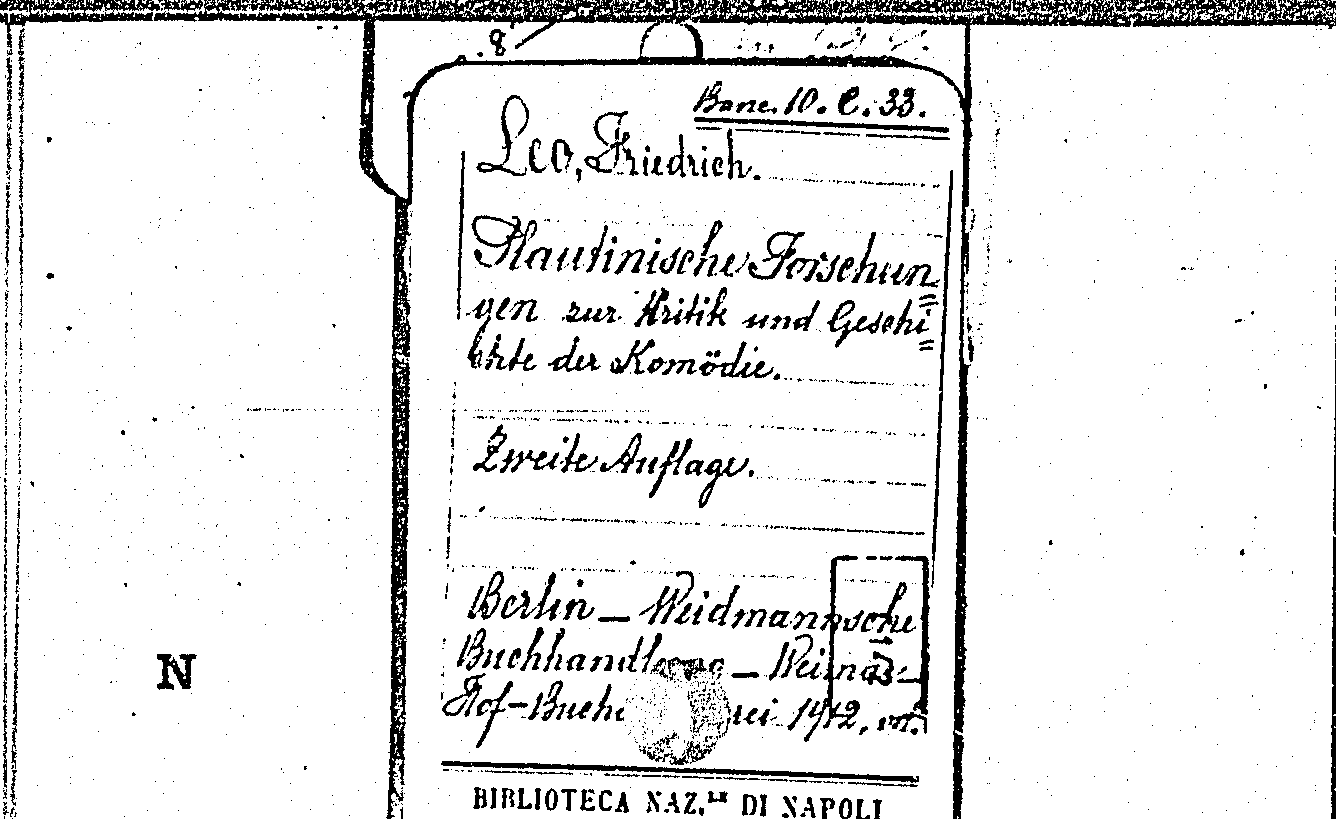 8
Banc. 10. C. 33.
Leo, Friedrich.
Plautinische Forschun
gen zur Kritik und Geschi
chte der Komödie.
Zweite Auflage.
Berlin _ Weidmannsche
Buchhandlung _ Weimar _
Hof-Buch rei 1912, in
N
BIBLIOTECA NAZ.LE DI NAPOLI